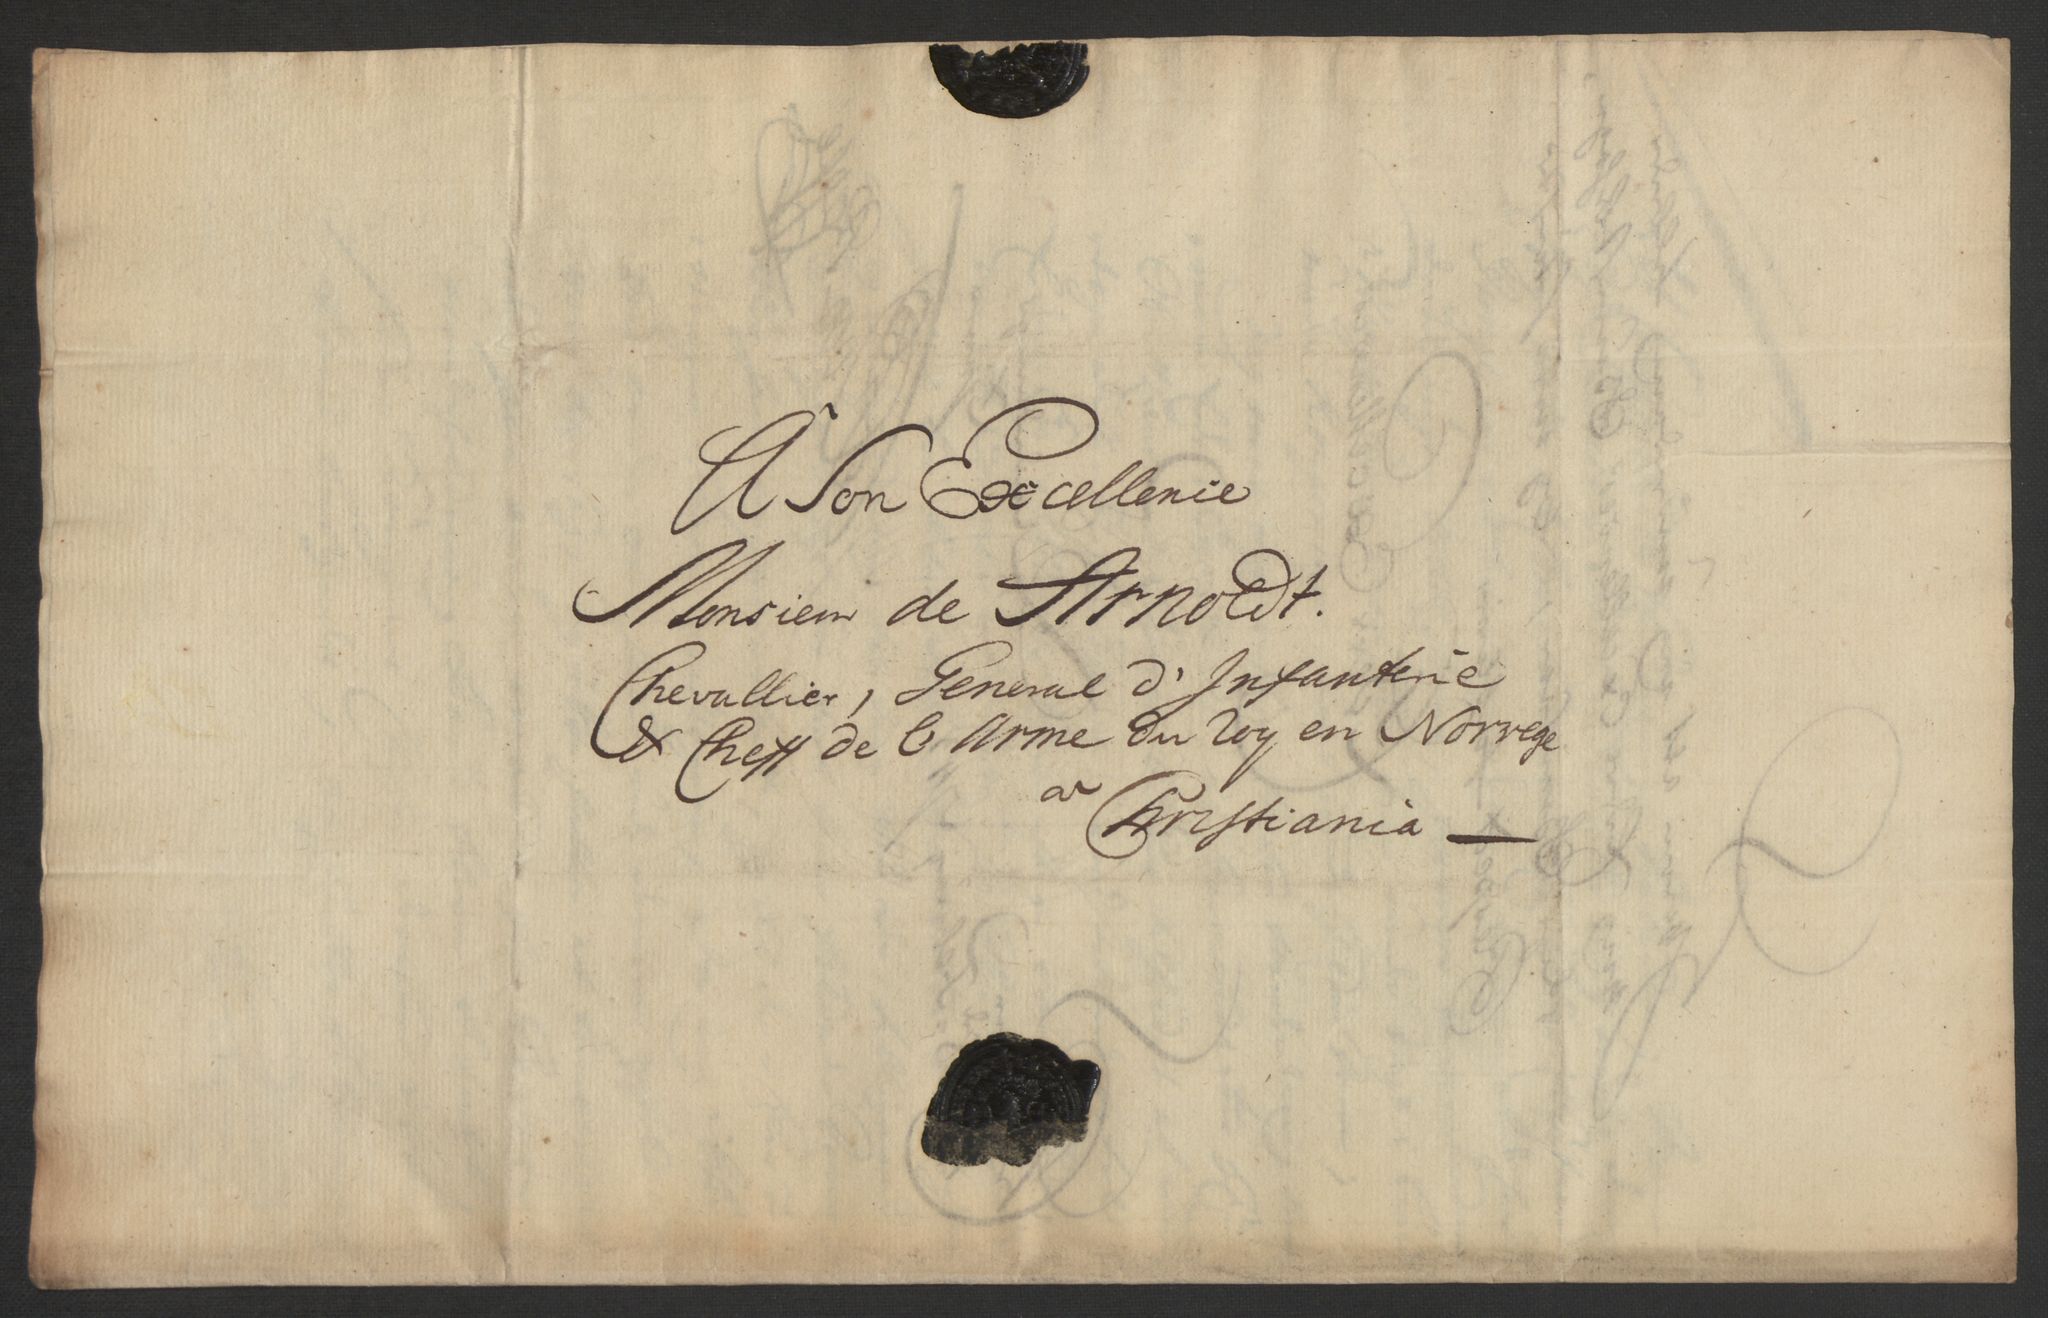 A Son Excellence
Monsieur de Arnoldt.
Chevallier, General d'Infanterie
& Cheff de l Arme du Roy en Norvege
a Christiania